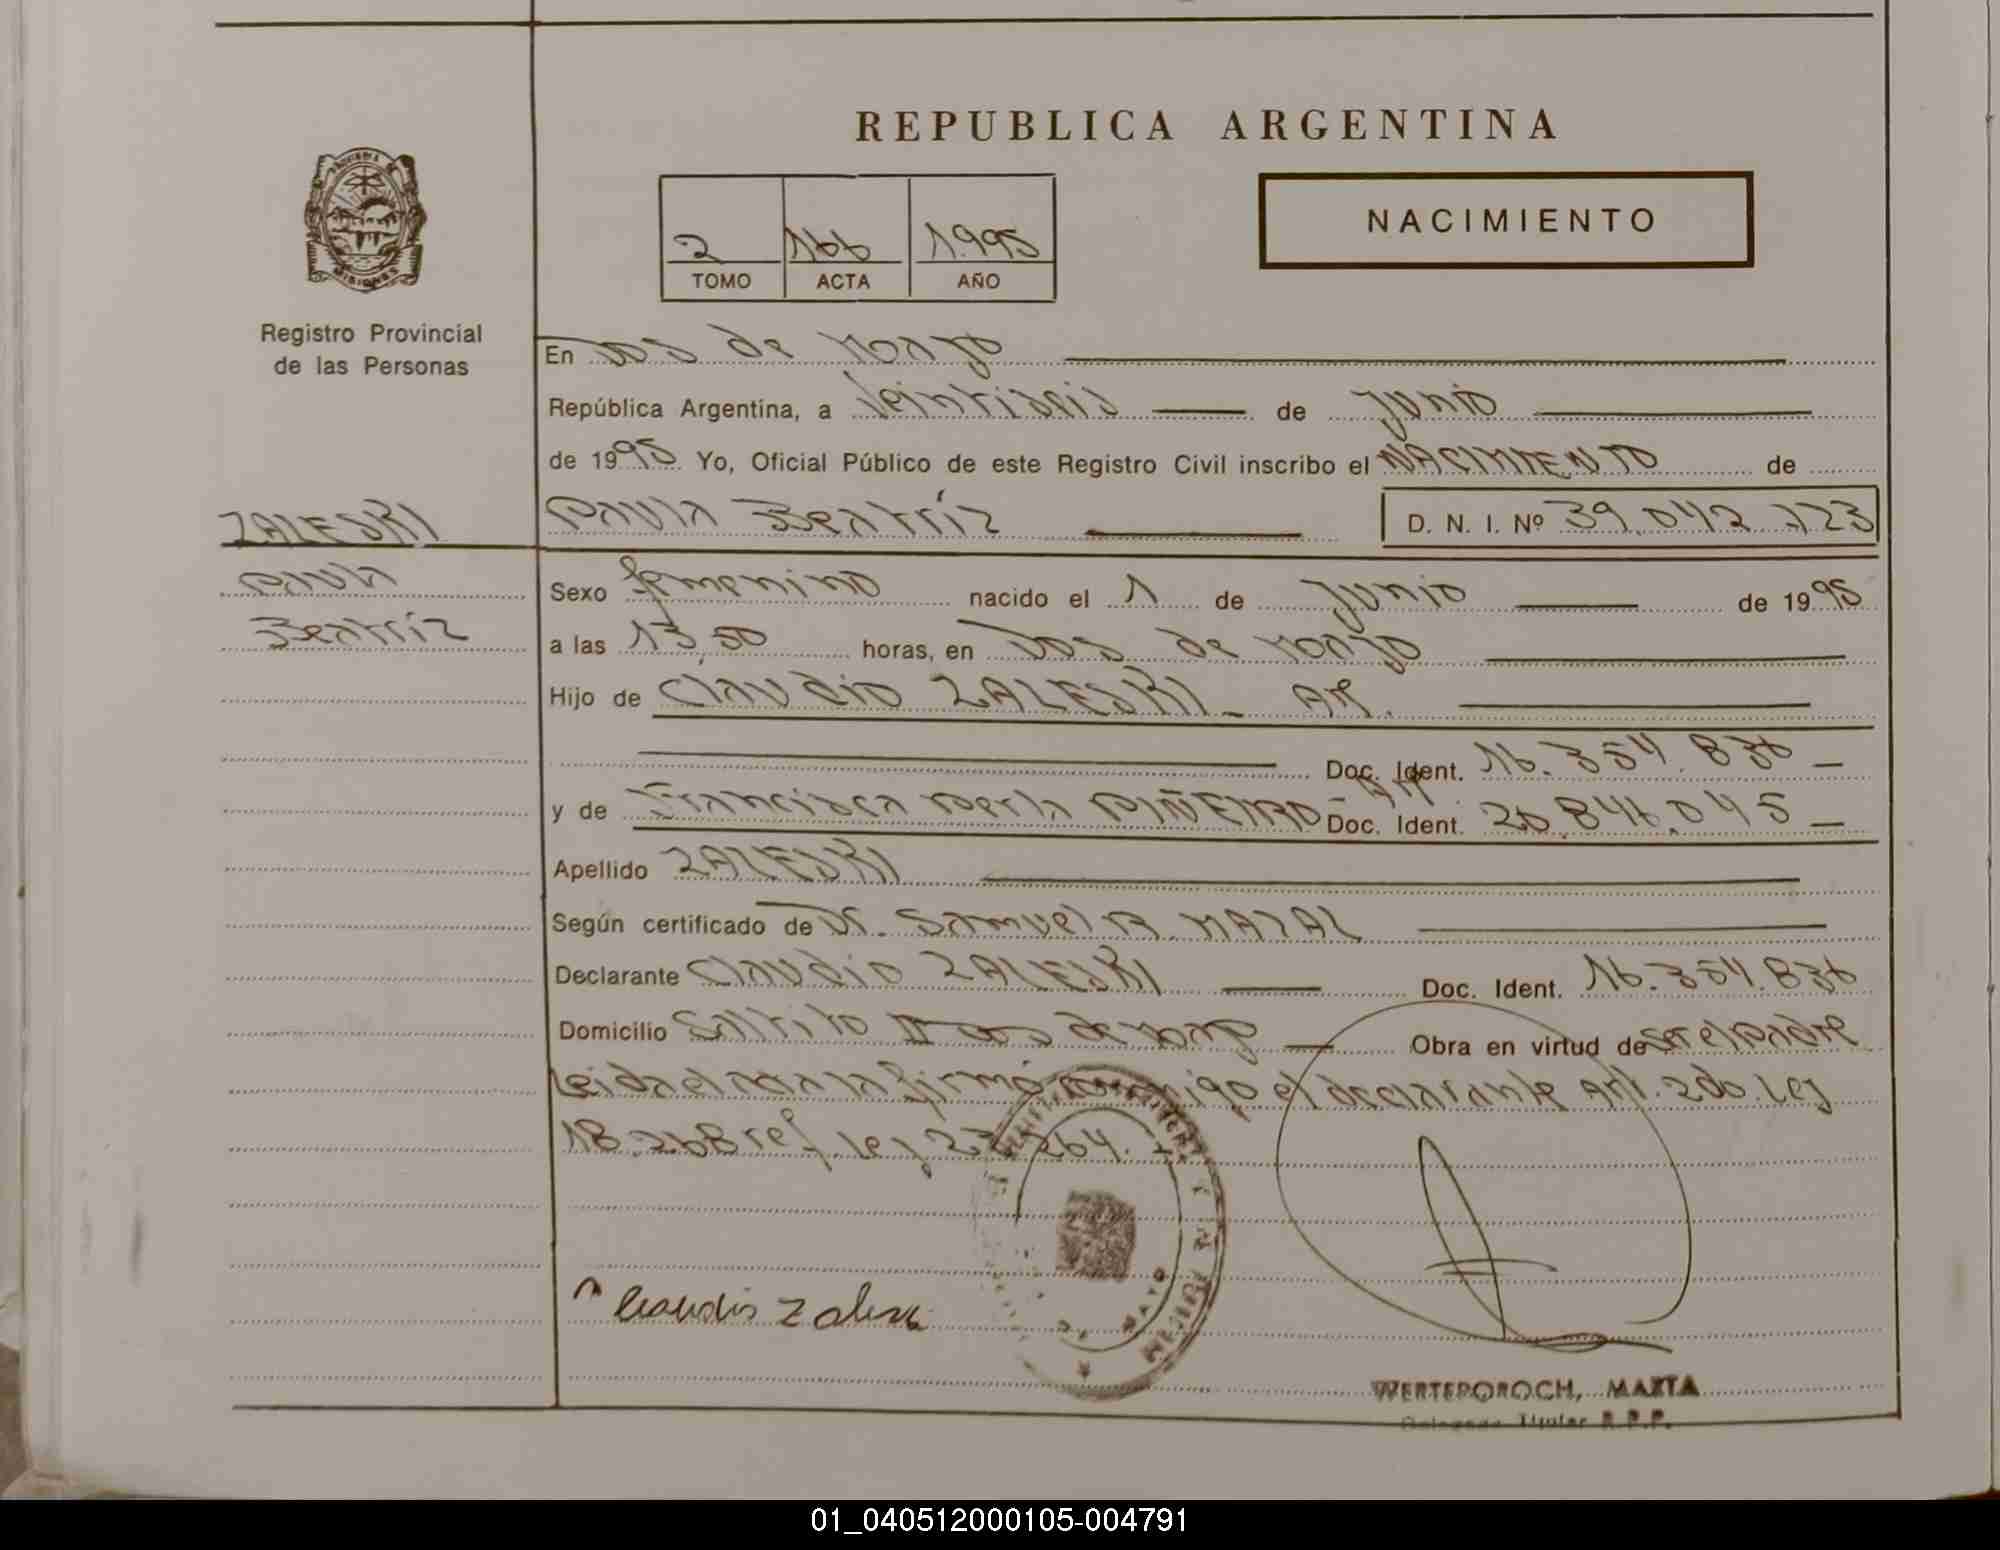 REPUBLICA ARGENTINA
NACIMIENTO
2 166 1.995
TOMO ACTA AÑO
MISIONES
Registro Provincial
de las Personas
En Dos de Mayo
República Argentina, a Veintiseis de Junio
de 1995 Yo, Oficial Público de este Registro Civil inscribo el NACIMIENTO de
ZALESKI
Paula Beatríz D. N. I. Nº 39.042.723
Paula
Beatríz
Sexo femenino nacido el 1 de Junio de 1995
a las 13,50 horas, en Dos de Mayo
Hijo de Claudio ZALESKI - Ar.
Doc. Ident. 16.354.836
y de Francisca Perla PIÑEIRO - Ar. Doc. Ident. 20.846.045
Apellido ZALESKI
Según certificado de Dr. Samuel R. MAZAL
Declarante Claudio ZALESKI Doc. Ident. 16.354.836
Domicilio Saltito II Dos de Mayo Obra en virtud de ser el Padre
Leida el acta la firma conmigo el declarante Art. 2do. Ley
18.268 ref. Ley 22.264.
Claudio Zaleski
MAYO
WERTEPOROCH, MARTA
Delegada Titular R.P.P.
01_040512000105-004791